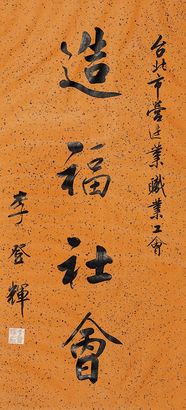 台北市營造業職業工會
造福社會
李登輝